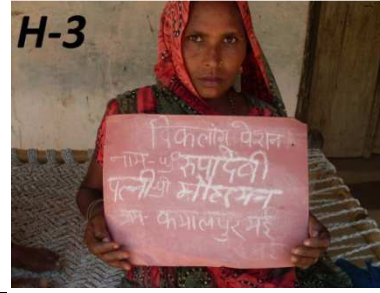 H-3
विकलांग पेंशन
नाम- श्री रुपादेवी
पत्नी श्री मोहरमन
ग्राम- कमालपुर मई